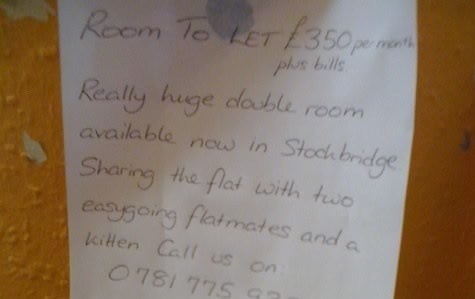 Room To LET £350 per month
plus bills
Really huge double room
available now in Stockbridge
Sharing the flat with two
easygoing flatmates and a
kitten Call us on:
0781 775